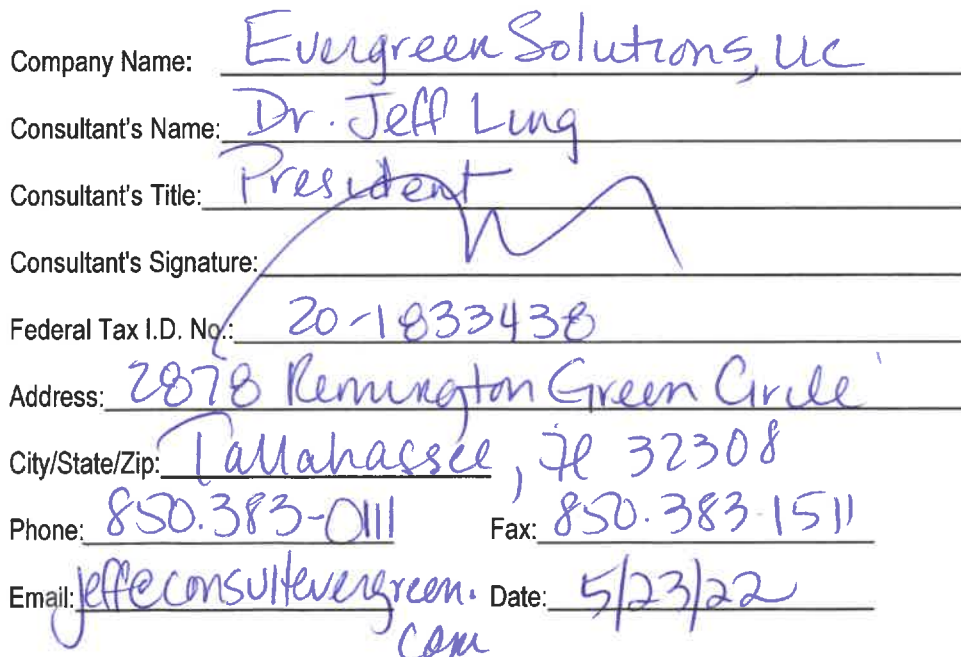 Company Name: Evergreen Solutions, LLC
Consultant's Name: Dr. Jeff Ling
Consultant's Title: President
Consultant's Signature:
Federal Tax I.D. No.: 20-1833438
Address: 2878 Remington Green Circle
City/State/Zip: Tallahassee, Fl 32308
Phone: 850.383-0111 Fax: 850.383-1511
Email: jeff@consultevergreen. Date: 5/23/22
com